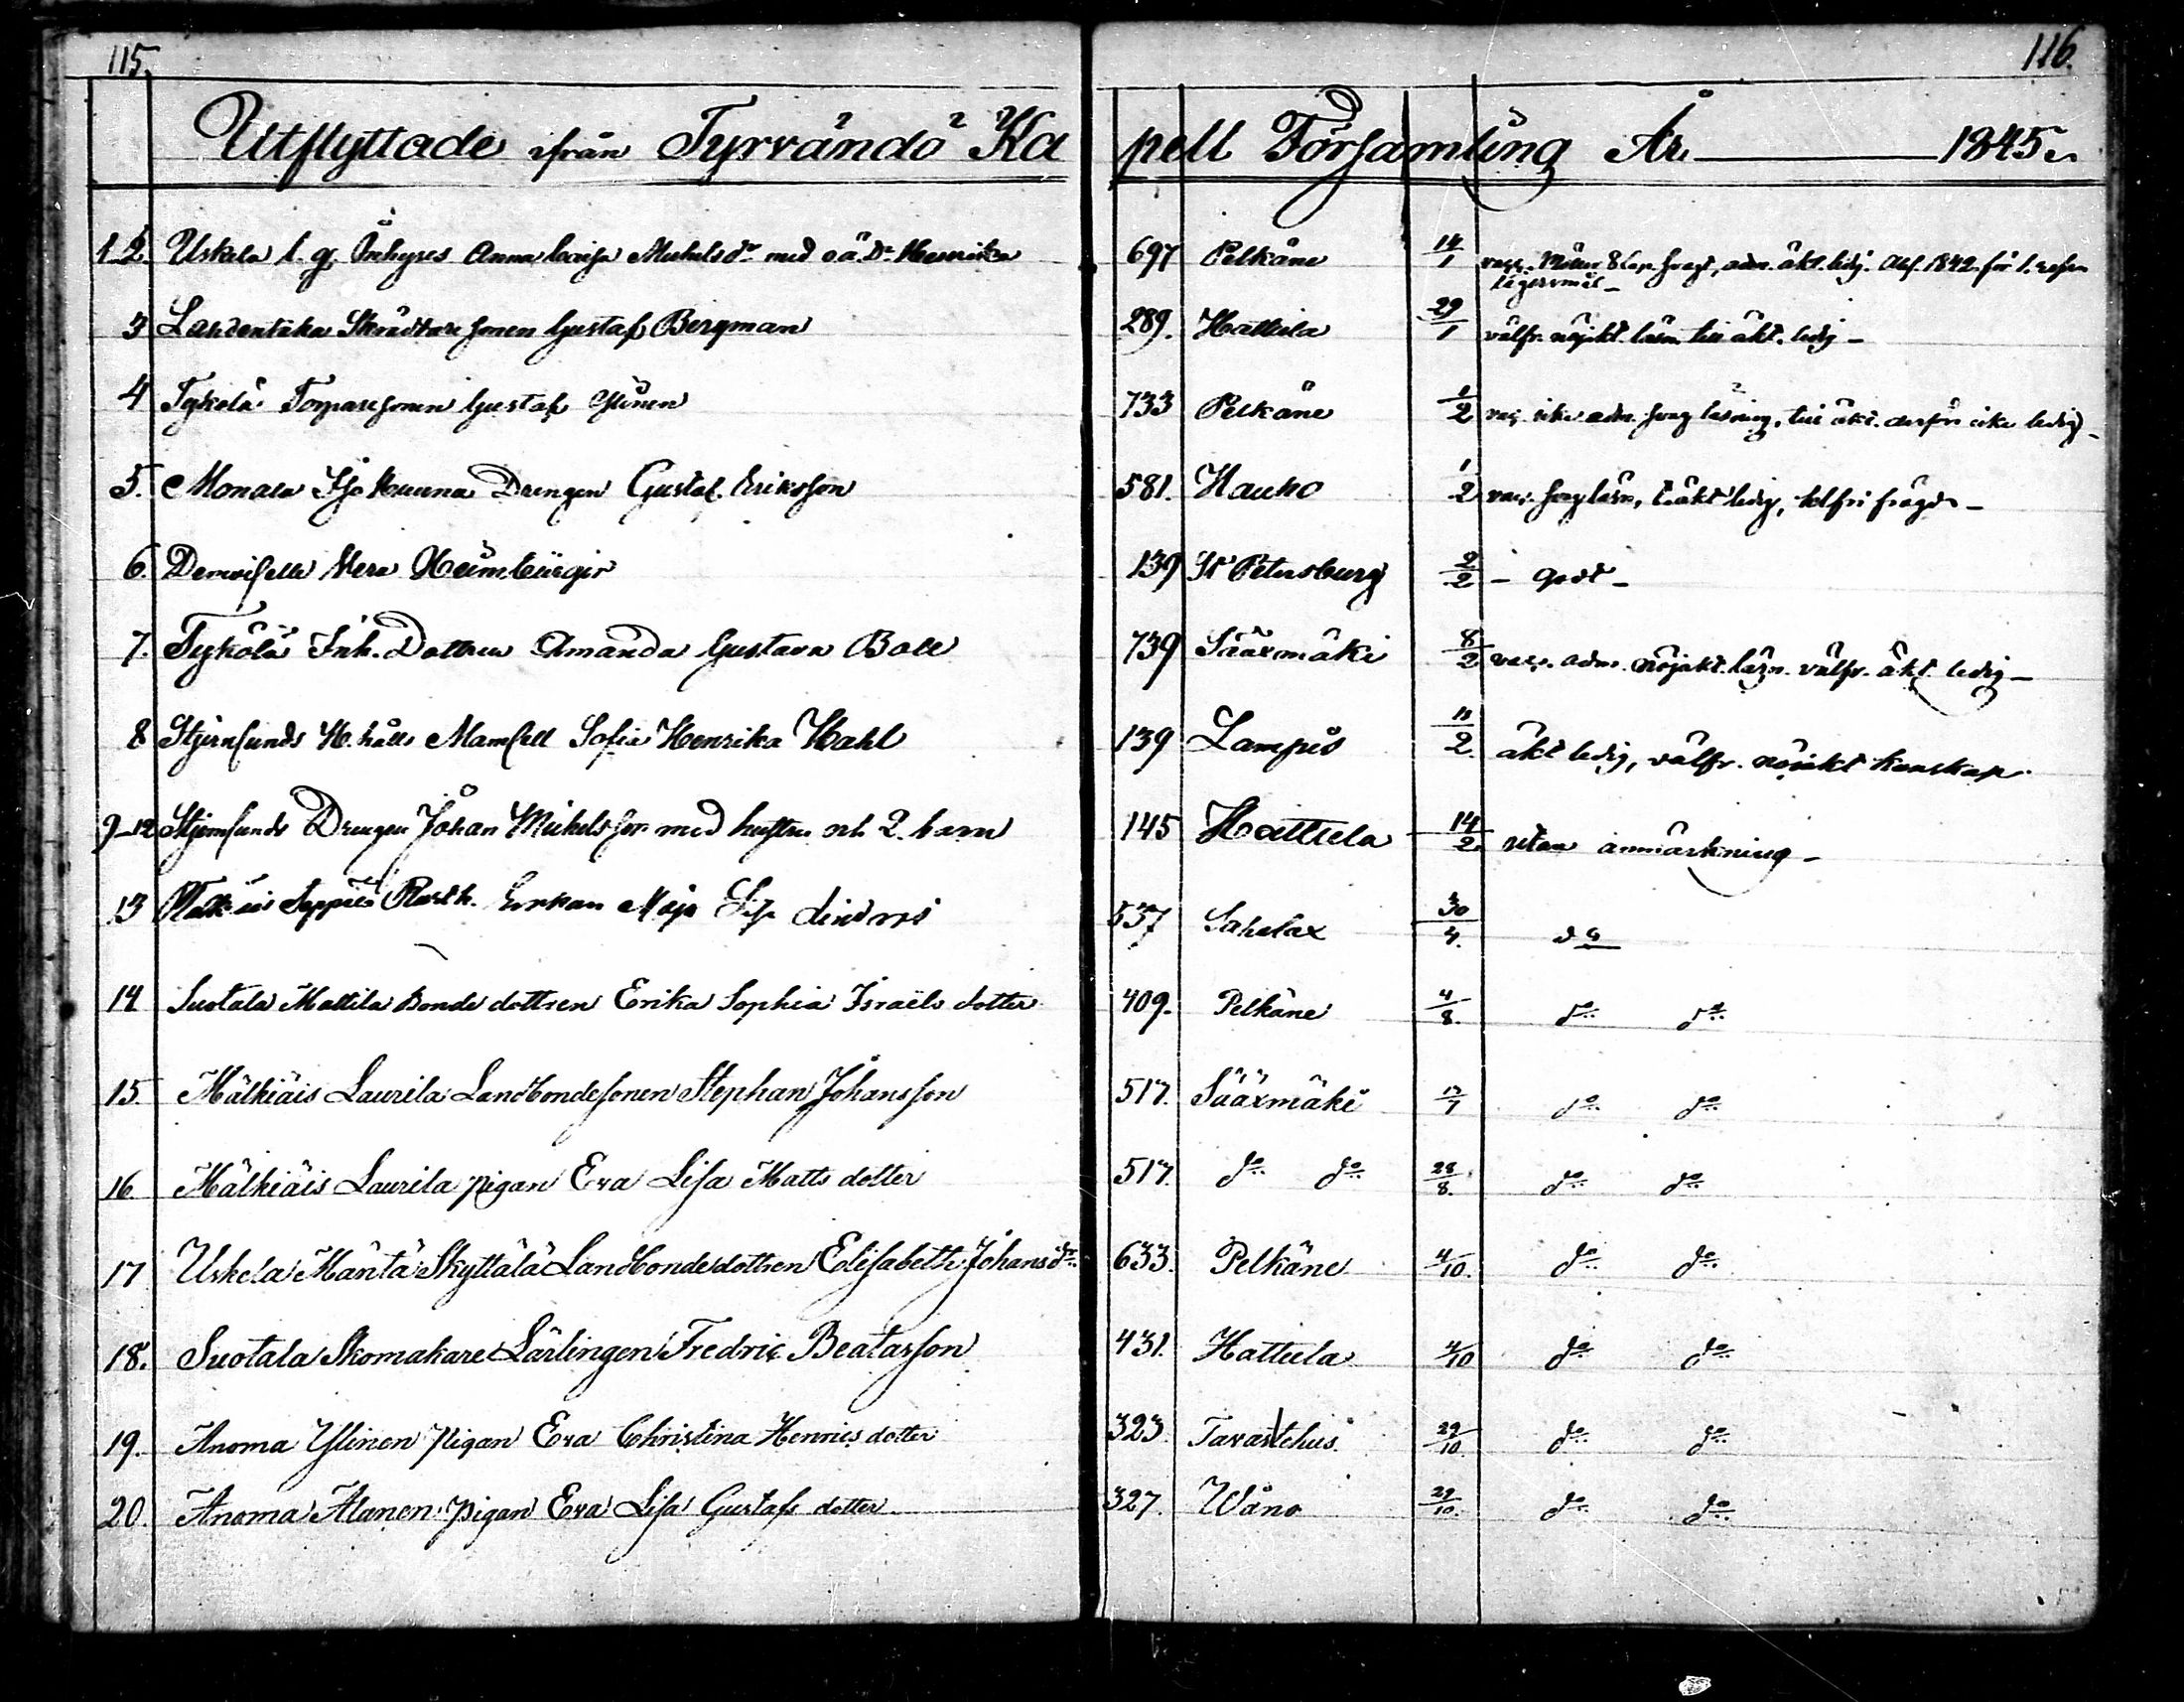 115. 116.
Utflyttade ifrån Tyrvändö Kapell Församling År 1845
1.2. Uskela l. g. Inhyses Anna Lovisa Michelsdr med o.ä. Dr Henrika 697 Pelkäne 14/1 vacc. adm. äkt. ledig. Abs. 1842 för 1. resan
lägersmål –
3 Lahdentaka Skräddare sonen Gustaf Bergman 289. Hattula 29/1 välfr. nöjakt. läsn. till äkt. ledig –
4 Tykölä sonen Gustaf Ylinen 733 Pelkäne 1/2 vac. icke adm. svag läsning, till äkt. derför icke ledig –
5. Monala Iso Kunna Drengen Gustaf Eriksson 581. Hauho 1/2 vac. svag läsn, t. äkt ledig, välfr: frägd –
6. Demoiselle Vera Heimbürger 139 St Petersburg 2/2 – godt –
7. Tykölä Inh. Dottren Amanda Gustava Boll 739 Sääxmäki 8/2 vacc. adm. nöjakt. läsn. välfr. äkt. ledig –
8 Stjernsunds H. hålls Mamsell Sofia Henrika Wahl 139 Lampis 11/2. äkt ledig, välfr. nöjakt kunskap.
9–12 Stjernsunds Drengen Johan Michelsson med hustru och 2. barn 145 Hattula 14/2. utan anmärkning –
13 Seppälä Enkan Maja Lisa Lindroos 557 Sahalax 30/4. do
14 Suotala Mattila Bonde dottren Erika Sophia Israëls dotter 409. Pelkäne 4/8. do do
15. Mälkiäis Laurila Landbondesonen Stephan Johansson 517. Sääxmäki 17/7 do do
16 Mälkiäis Laurila pigan Eva Lisa Matts dotter 517. do do 28/8. do do
17 Uskela Mäntä Skyttälä Landbondedottren Elisabeth Johansdr. 633. Pelkäne 4/10. do do
18. Suotala Skomakare Lärlingen Fredric Beatasson 431. Hattula 4/10 do do
19. Anoma Ylinen Pigan Eva Christina Henrics dotter 323 Tavastehus 29/10 do do
20. Anoma Alanen pigan Eva Lisa Gustafs dotter 327. Wåno 29/10. do do